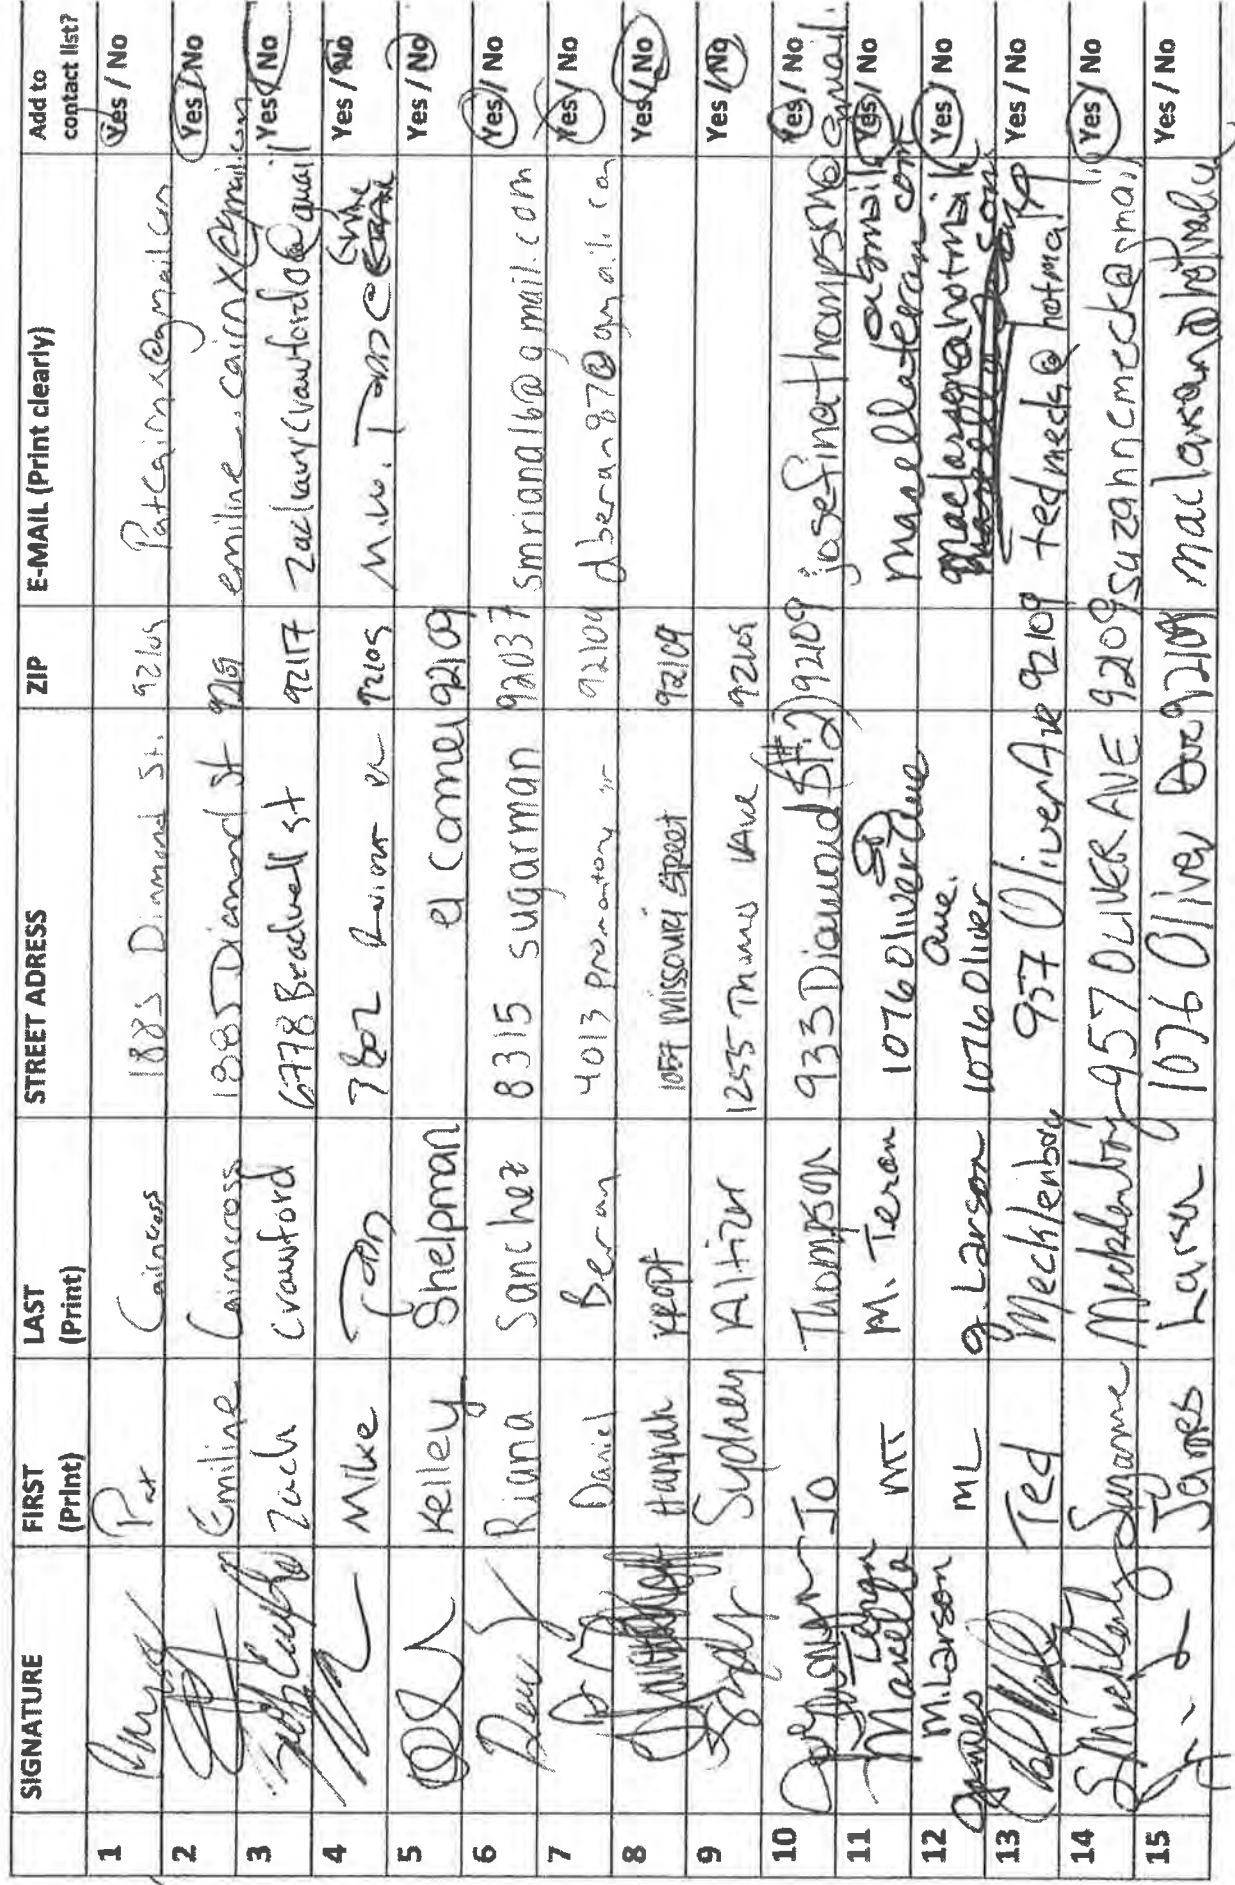 SIGNATURE FIRST (Print) LAST (Print) STREET ADRESS ZIP E-MAIL (Print clearly) Add to contact list?
1 Pat Cairncross 1885 Diamond St. 92109 Patcairnx@gmail.com Yes / No
2 Emiline Cairncross 1885 Diamond St 92109 emiline_cairnx@gmail.com Yes / No
3 Zach Crawford 6778 Beadwell st 92117 @gmail Yes / No
4 Mike 92109 Yes / No
5 Kelley Shelpman el Comel 92109 Yes / No
6 Riana Sanchez 8315 sugarman 92037 smriana16@gmail.com Yes / No
7 Daniel Beran 4013 Promontory 92109 dberan87@gmail.com Yes / No
8 Hannah Kropf 1057 Missouri Street 92109 Yes / No
9 Sydney Altizer 1255 Thomas Ave 92109 Yes / No
10 Jo Thompson 933 Diamond St #2 92109 josefinathompsno@gmail. Yes / No
11 Marella Teran MT M. Teran 1076 Oliver Ave SD marellateran@gmail.com Yes / No
12 James M. Larson ML J. Larson 1076 Oliver ave. Yes / No
13 Ted Mecklenborg 957 Oliver Ave 92109 tedmeck@hotmail Yes / No
14 Suzanne Mecklenborg 957 OLIVER AVE 92109 suzanncmeck@gmail Yes / No
15 James Larson 1076 Oliver Ave 92109 Yes / No